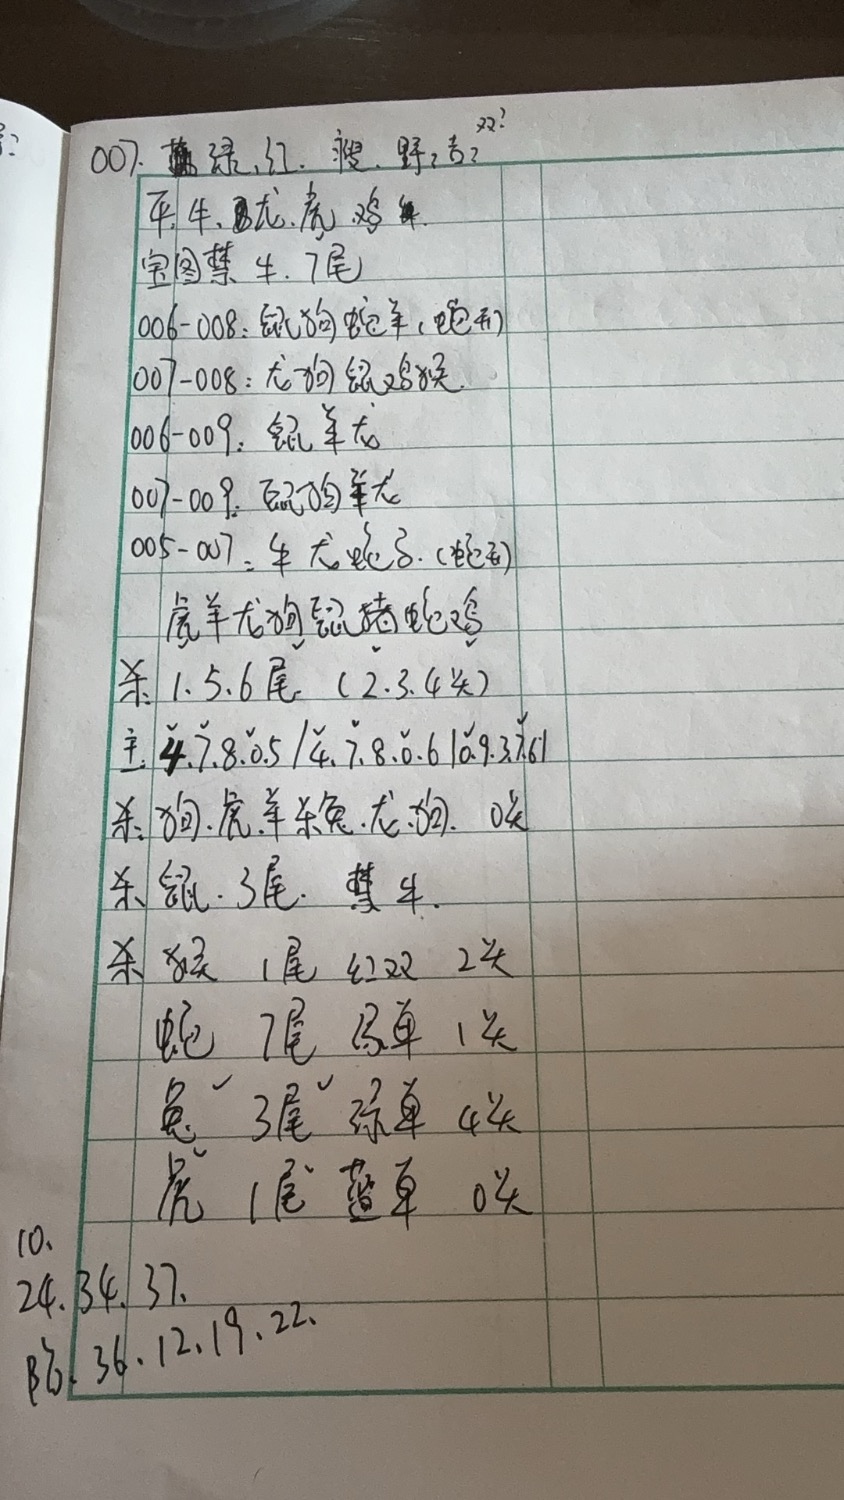 007. 绿.红. 野? 吉? 双?
平.牛.龙.虎.鸡
宝图禁牛.7尾
006-008:鼠狗蛇羊(蛇干)
007-008:龙狗鼠鸡猴
006-009:鼠羊龙
007-009:鼠狗羊龙
005-007:牛龙蛇马.(蛇)
虎羊龙狗鼠猪蛇鸡
杀.1.5.6尾.(2.3.4头)
主.4.7.8.0.5/4.7.8.0.6/0.9.3.7.61
杀.狗.虎.羊杀兔.龙.狗. 0头
杀.鼠.3尾. 禁牛.
杀.猴 1尾 红双 2头
蛇 7尾 单 1头
兔 3尾 绿单 4头
虎 1尾 蓝单 0头
10.
24.34.37.
36.12.19.22.